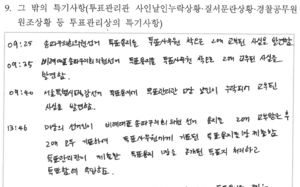 9. 그 밖의 특기사항(투표관리관 사인날인누락상황·질서문란상황·경찰공무원
원조상황 등 투표관리상의 특기사항)
09:25 송파구의회의원선거 투표용지를 투표사무원 착오로 2매 교부된 사실을 발견함.
09:35 비례대표 송파구의회의원선거 투표용지를 투표사무원 착오로 2매 교부한 사실을
발견함.
09:40 서울특별시 선거 투표용지 투표관리관 날인이 누락되어 교부된
사실을 발견함.
13:46 선거인이 비례대표 송파구의회의원 선거 용지를 2매 교부받은 후
2매 모두 기표하여 투표사무원에게 기표된 투표용지 1매 제출함
투표관리관이 제출한 투표용지 1매는 공개된 투표지 처리하고
투표함에 투입함.